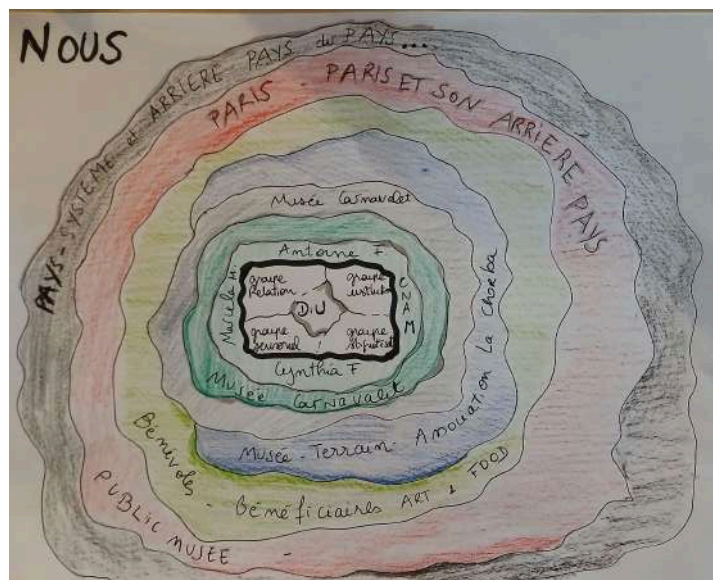 NOUS
PAYS-SYSTEME et ARRIERE PAYS du PAYS...
PARIS - PARIS ET SON ARRIERE PAYS
Musée Carnavalet
Antoine F
Marcela M.
CNAM
groupe Relation
groupe
DiU
groupe sensoriel
groupe
Cynthia F
Musée Carnavalet
Musée - Terrain - Association La Chorba
Bénévoles - Bénéficiaires ART & FOOD
PUBLIC MUSÉE -